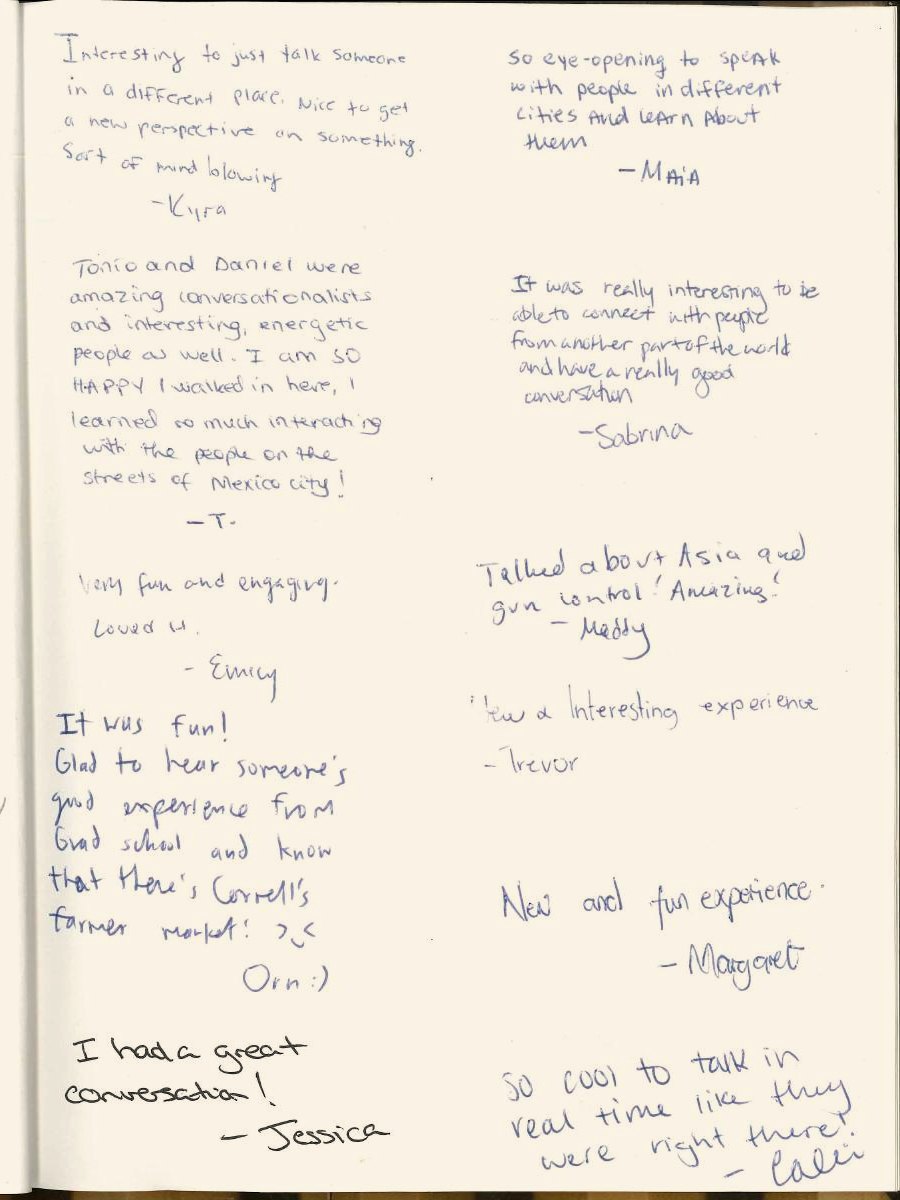 Interesting to just talk someone
in a different place. Nice to get
a new perspective on something.
Sort of mind blowing
-Kyra
Tonio and Daniel were
amazing conversationalists
and interesting, energetic
people as well. I am SO
HAPPY I walked in here, I
learned so much interacting
with the people on the
streets of Mexico city!
-T.
Very fun and engaging.
Loved it.
- Emily
It was fun!
Glad to hear someone's
good experience from
Grad school and know
that there's Cornell's
farmer market! >‿<
Orn :)
I had a great
conversation!
- Jessica
so eye-opening to speak
with people in different
cities and learn about
them
-Maia
It was really interesting to be
able to connect with people
from another part of the world
and have a really good
conversation
-Sabrina
Talked about Asia and
gun control! Amazing!
- Maddy
New & Interesting experience
-Trevor
New and fun experience.
- Margaret
so cool to talk in
real time like they
were right there!
-